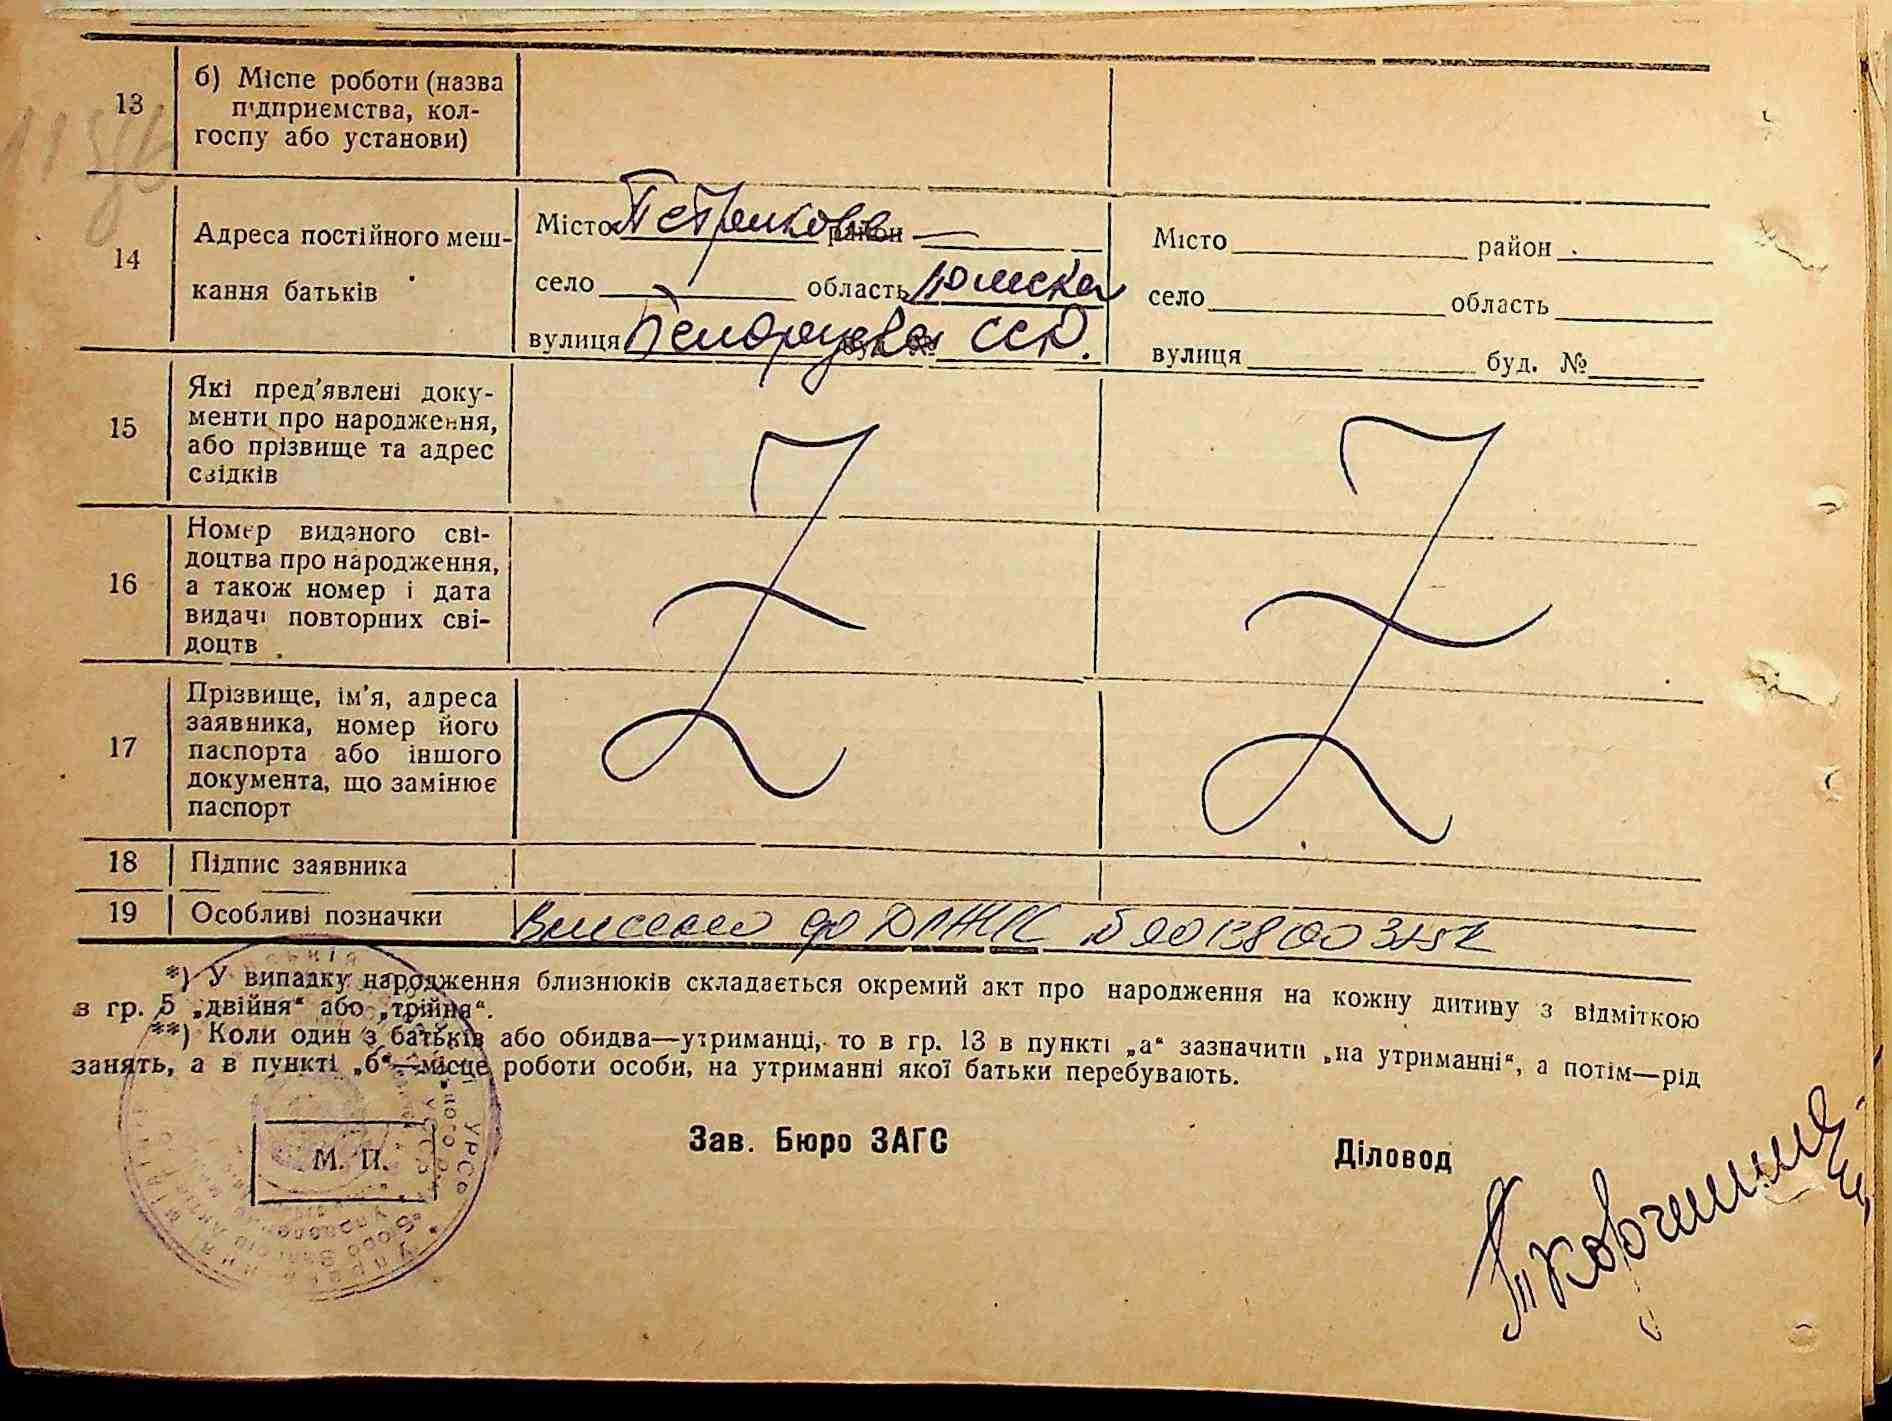 13
б) Місце роботи (назва
підприємства, кол-
госпу або установи)
14
Адреса постійного меш-
кання батьків
Місто Петриков район —
село область
вулиця ССР.
Місто район
село область
вулиця буд. №
15
Які пред'явлені доку-
менти про народження,
або прізвище та адрес
свідків
16
Номер виданого сві-
доцтва про народження,
а також номер і дата
видачі повторних сві-
доцтв
17
Прізвище, ім'я, адреса
заявника, номер його
паспорта або іншого
документа, що замінює
паспорт
18
Підпис заявника
19
Особливі позначки
Внесено до
*) У випадку народження близнюків складається окремий акт про народження на кожну дитину з відміткою
в гр. 5 „двійня“ або „трійня“.
**) Коли один з батьків або обидва—утриманці, то в гр. 13 в пункті „а“ зазначити „на утриманні“, а потім—рід
занять, а в пункті „б“—місце роботи особи, на утриманні якої батьки перебувають.
М. П.
Зав. Бюро ЗАГС
Діловод